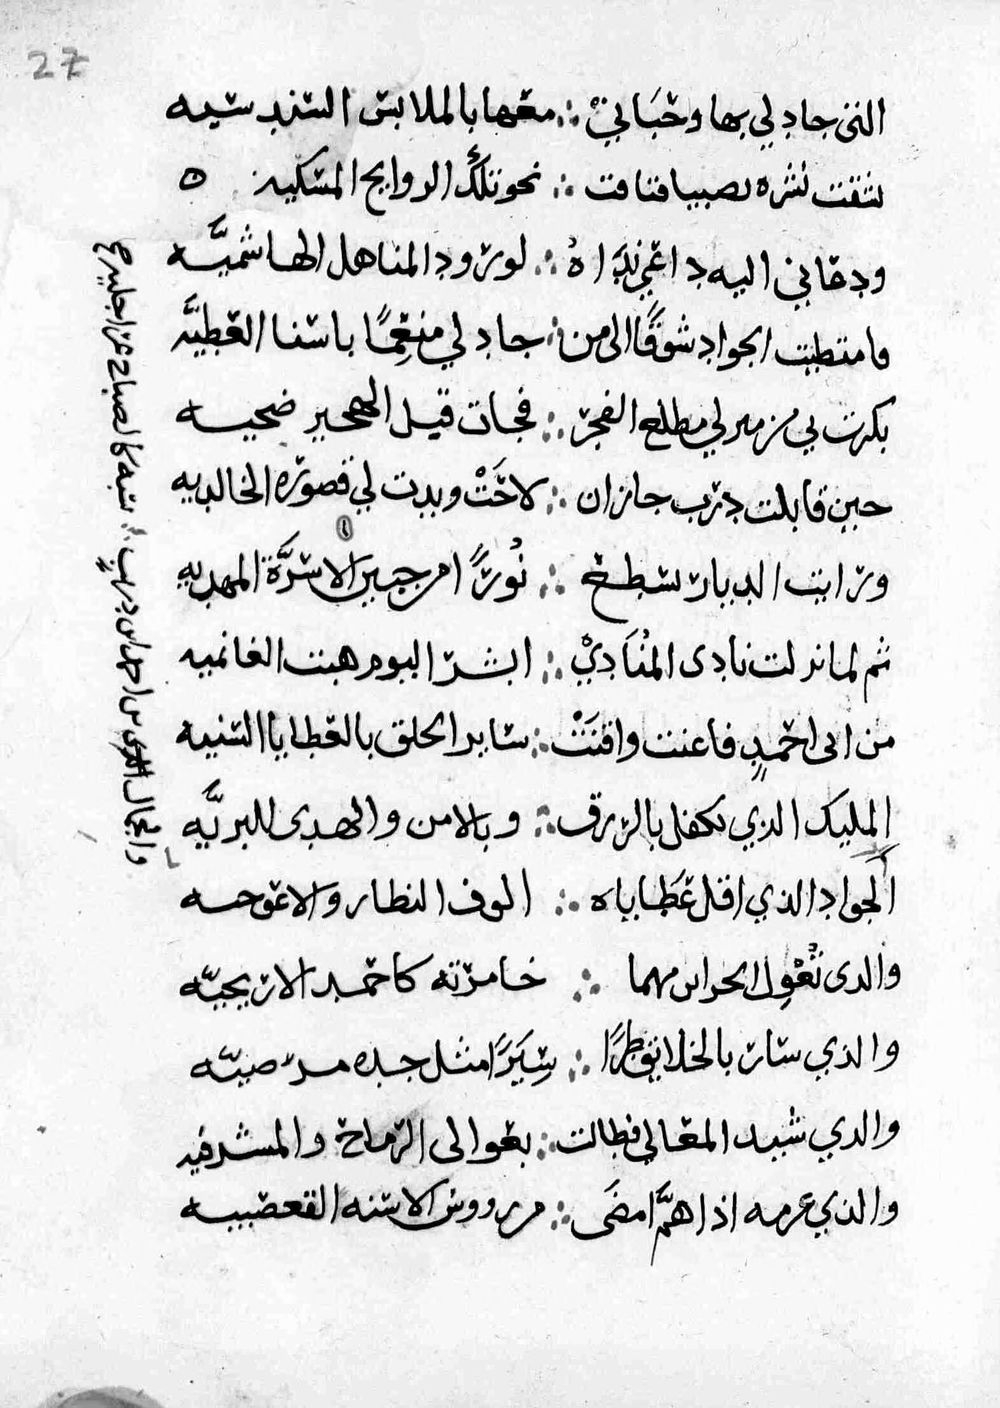 27
التي جاد لي بها وحباني ∴ معها بالملابس السندسيه
نحو تلك الروايح المسكيه
ودعاني اليه داعي نداه ∴ لورود المناهل الهاشميّه
فامتطيت الجواد شوقًا الى من ∴ جاد لي منعمًا باسنا العطيّه
بكرت بي من منزلي مطلع الفجر ∴ فجات قبل الهجير ضحيه
حين قابلت درب جازان ∴ لاحَتْ وبدت لي قصوره الخالديه
ورايت الديار تسطع ∴ نُورًا من جبين الاسرَّة المهديه
ثم لما نزلت نادى المنَادِيْ ∴ ابشر اليوم هبت الغانميه
من ابى احمدٍ فاغنت واقنَتْ ∴ ساير الخلق بالعطايا السنيه
المليك الذي تكفل بالرزق ∴ وبالامن والهدى للبريَّه
الجواد الذي اقل عَطاياه ∴ الوف النظار والاعوجيه
والذي مهما ∴ خامرته كاحمد الاريحيّه
والذي سار بالخلايق طرًا ∴ سِيَرًا مثل جده مرضيّه
والذي شيد المعالي فطالت ∴ بعوالى الرماح والمشرفيه
والذي عزمه اذا همَّ امضَى ∴ من رووس الاسنه القعضبيه